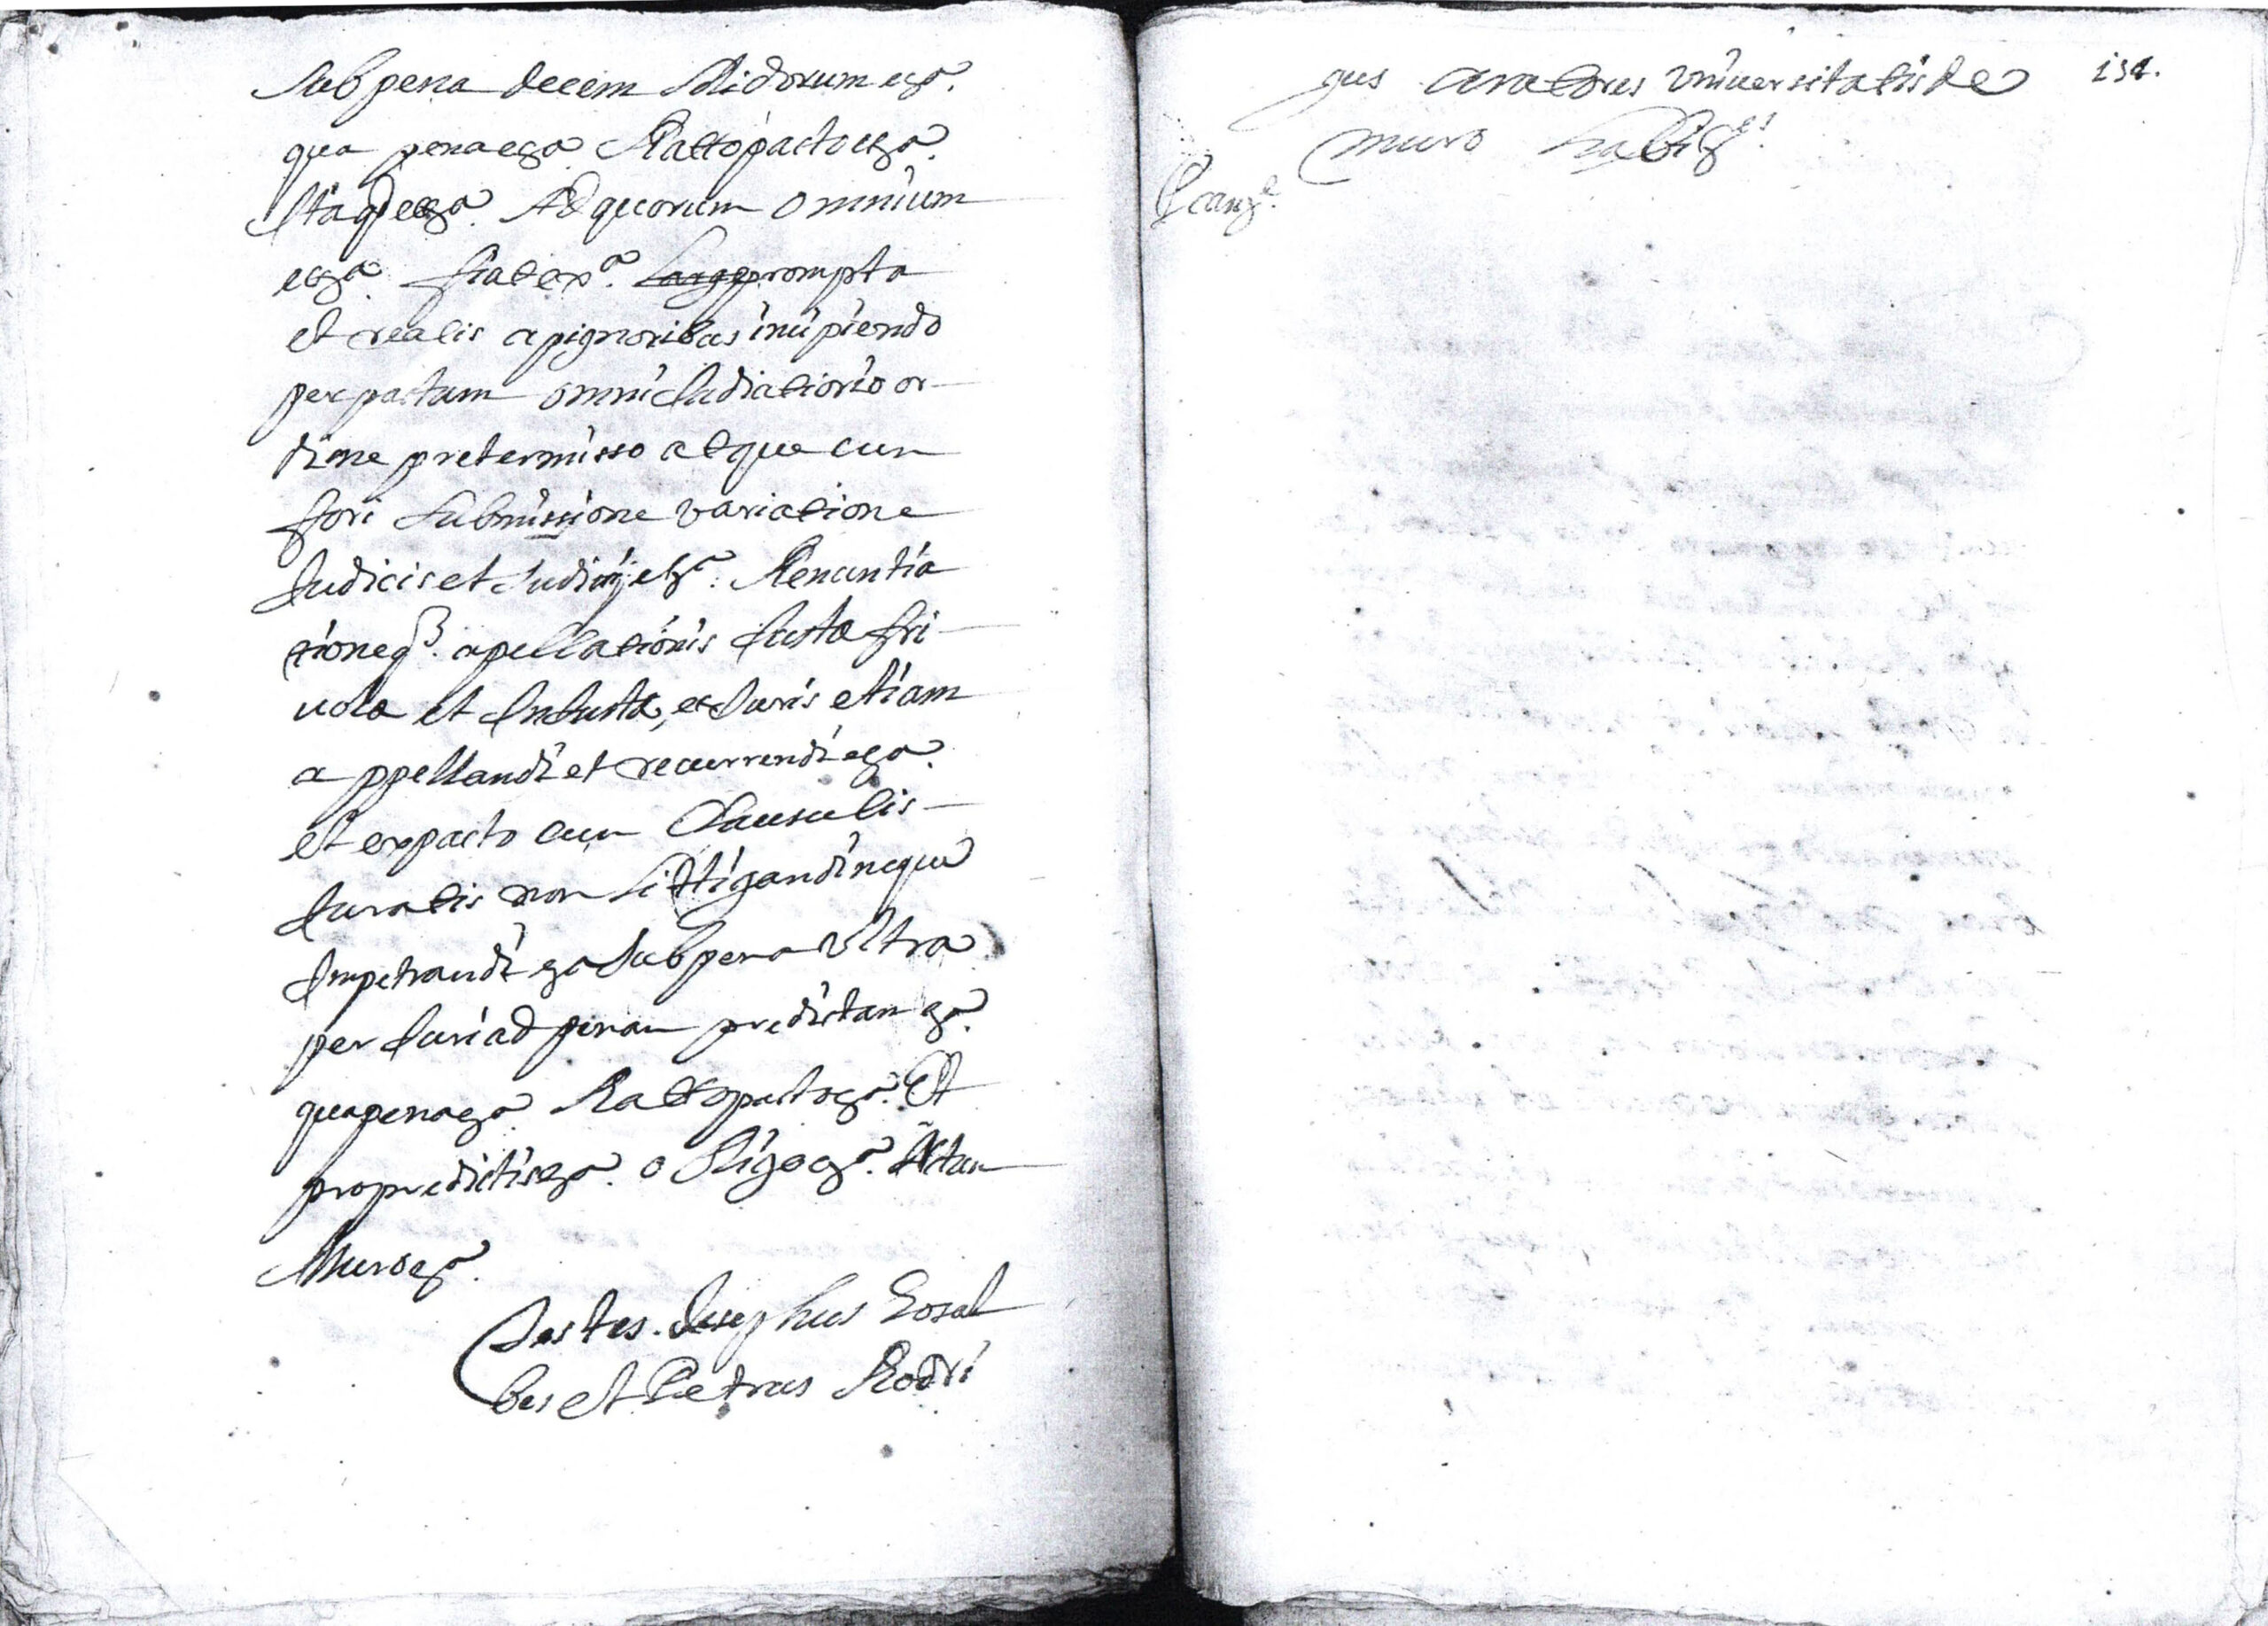 Sub pena decem solidorum etca.
qua pena etca Ratto pacto etca.
Itaq etca. Ad quorum omnium
etca. fiat exa. prompta
et realis a pignoribus incipiendo
per pactum omni Judiciorio or-
dine pretermisso atque cum
fori submissione variatione
Judicis et Judicij etca. Renuntia
tioneq3. apellationis Justa fri-
vola et InJusta, et Juris etiam
appellandi et recurrendi etca.
et ex pacto cum Clausulis-
Juratis non littigandi neque
Impetrandi etca sub pena ultra
per Juri ad penam predictam etca.
qua pena etca Ratto pacto etca. Et
pro predictis etca. obligo etca. Actum
Muro etca.
Testes. Josephus Gosal
bes et Petrus Rodri
gus aratores Universitatis de 151.
muro habits